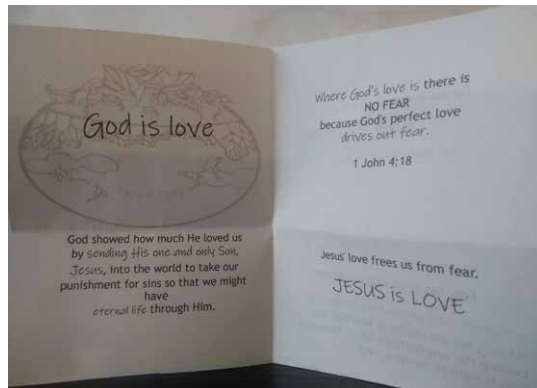 God is love
God showed how much He loved us
by sending His one and only Son,
Jesus, into the world to take our
punishment for sins so that we might
have
eternal life through Him.
Where God's love is there is
NO FEAR
because God's perfect love
drives out fear.
1 John 4:18
Jesus' love frees us from fear.
JESUS is LOVE